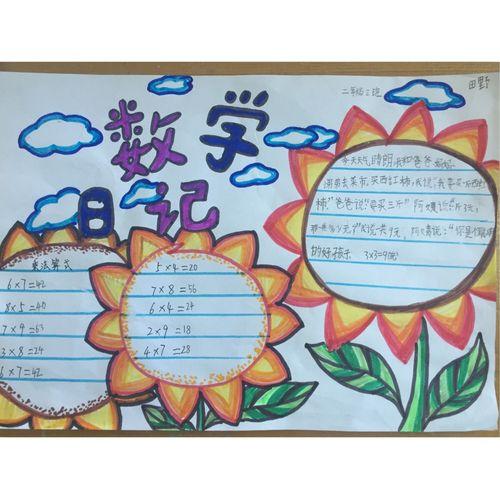 田野
二年级三班
数学
日记
今天天气晴朗,我和爸爸妈妈
弟弟去菜市,买西红柿,我说:"我要买西红
柿"爸爸说:"要买三斤"阿姨说:"1斤3元,
那一共多少元?"我说一共9元,阿姨说:"你是个聪明
的好孩子 3×3=9(元)
乘法算式
6×7=42
8×5=40
7×9=63
3×8=24
6×7=42
5×4=20
7×8=56
6×4=24
2×9=18
4×7=28